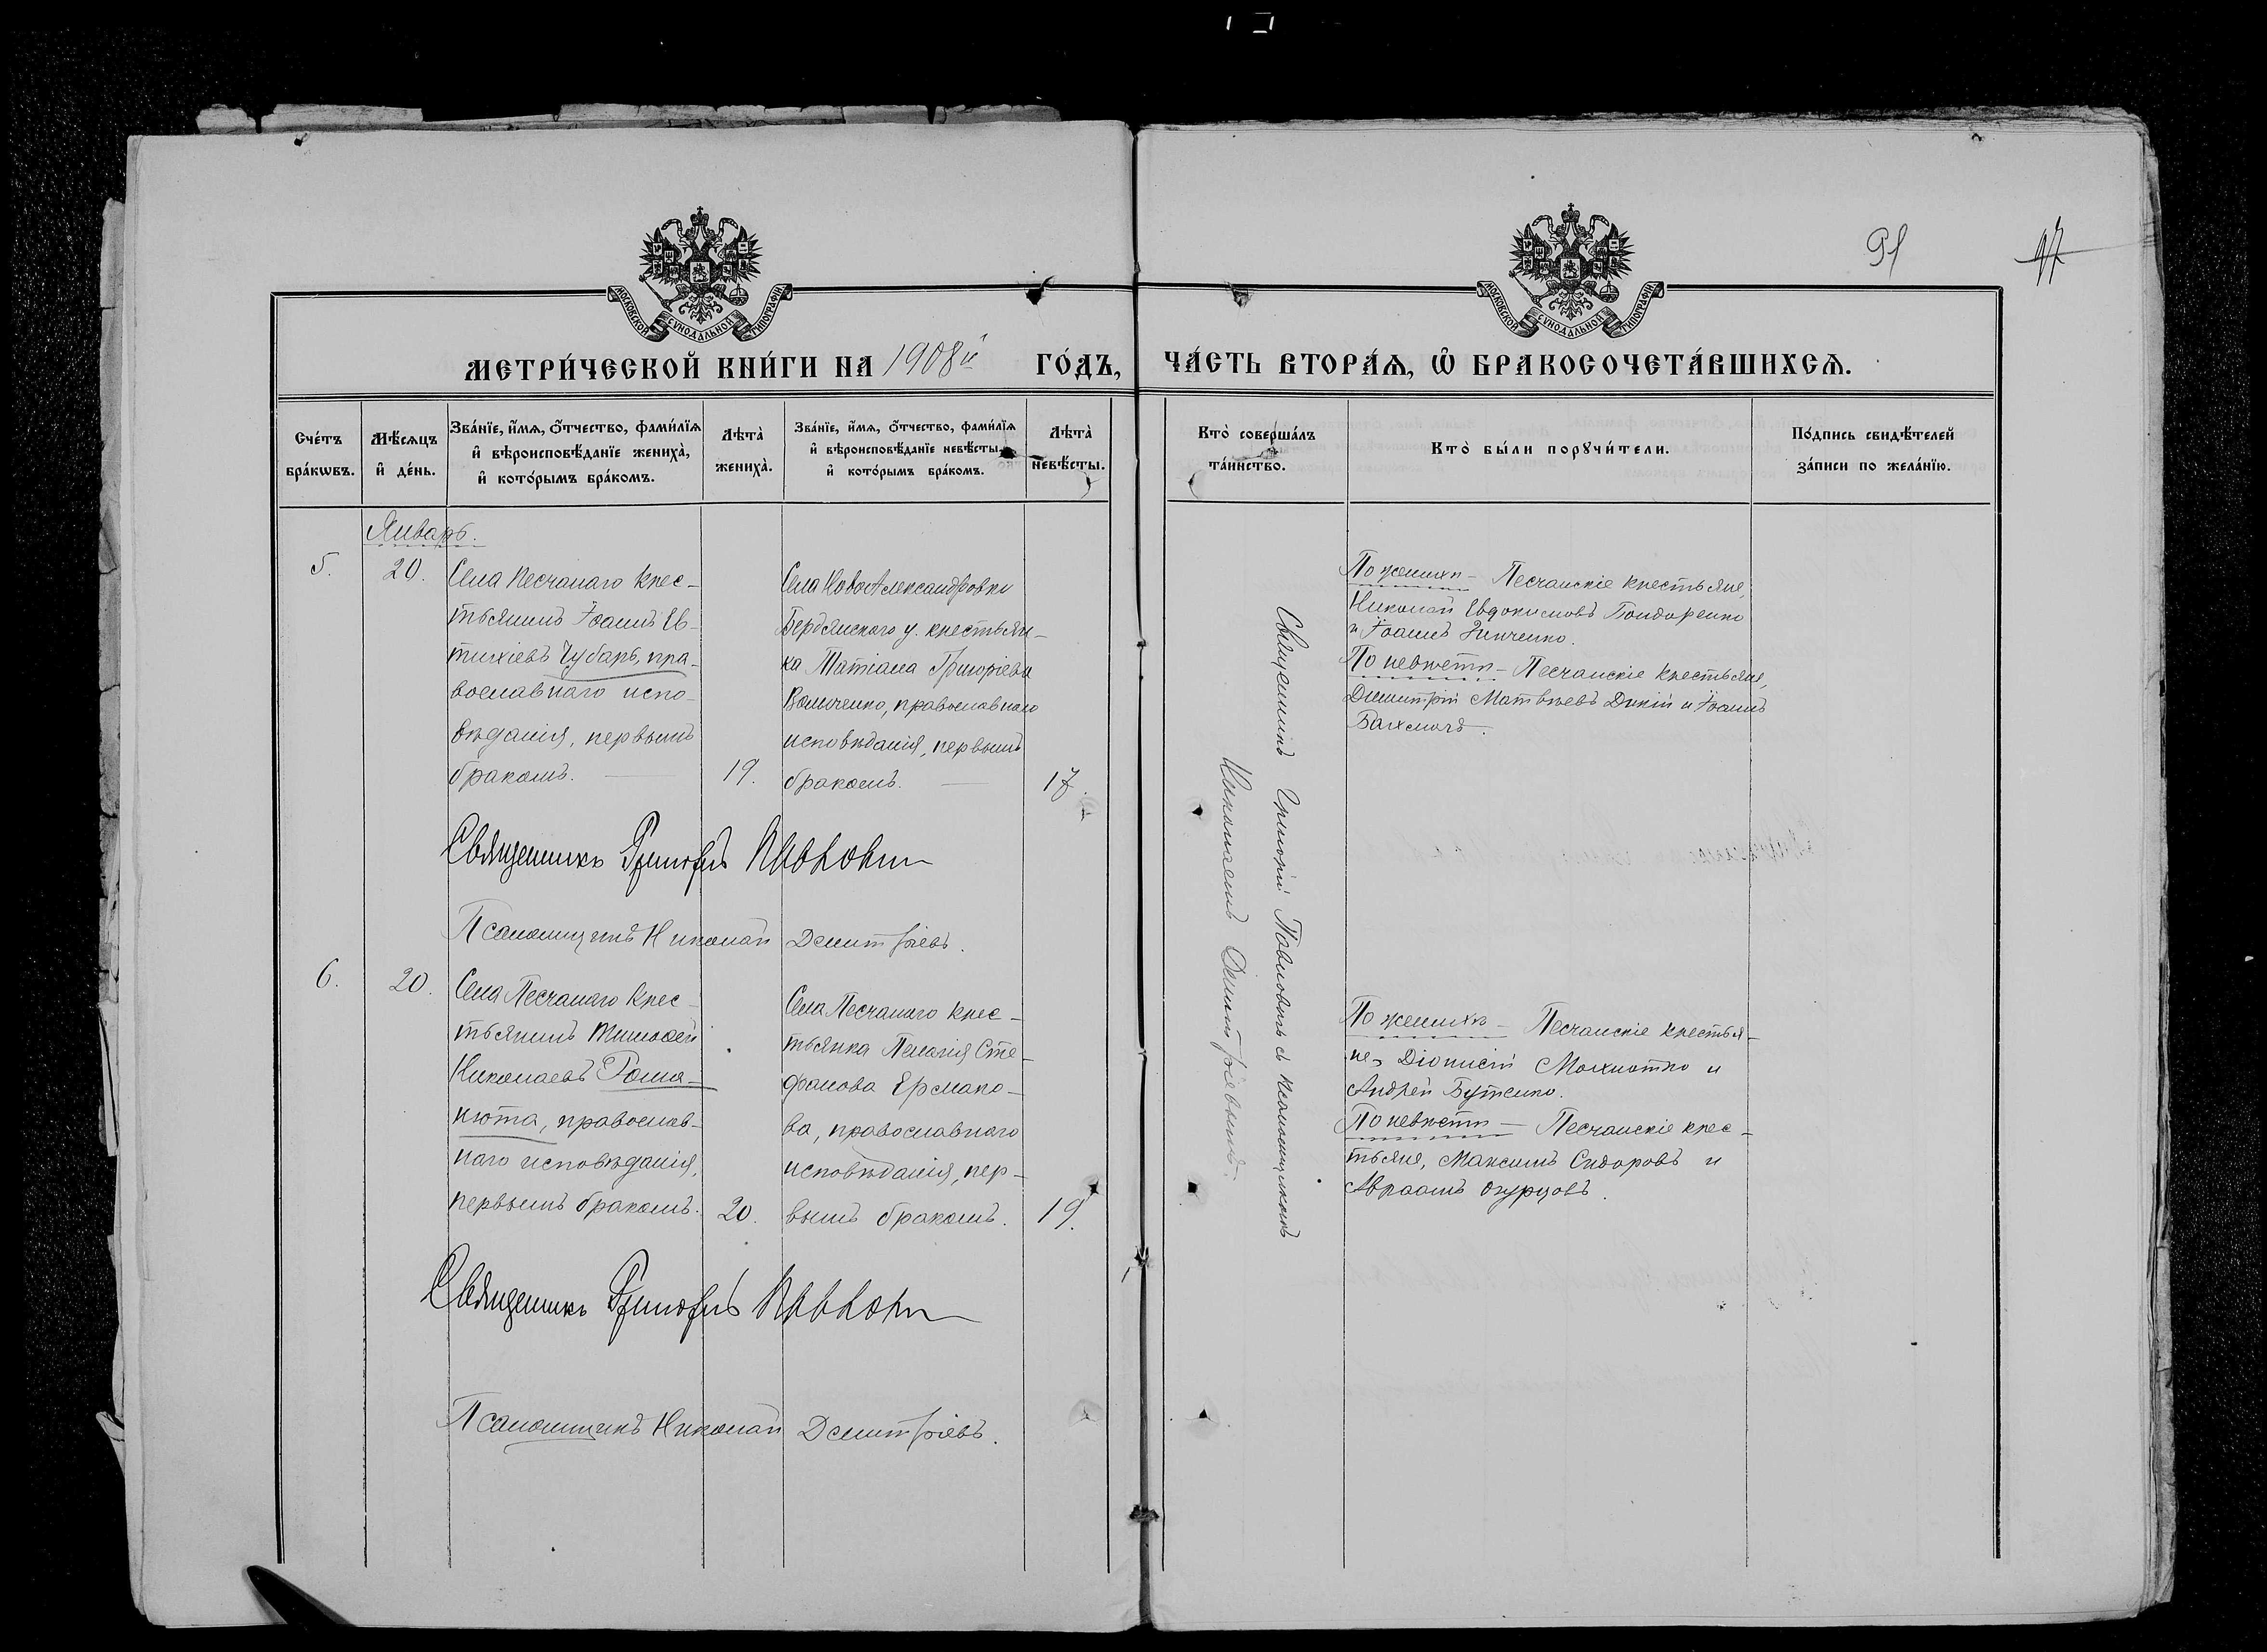 91
47
МОСКОВСКОЙ СѴНОДАЛЬНОЙ ТИПОГРАФІИ
МОСКОВСКОЙ СѴНОДАЛЬНОЙ ТИПОГРАФІИ
МЕТРИ́ЧЕСКОЙ КНИ́ГИ НА 1908й ГО́ДЪ, ЧА́СТЬ ВТОРА́Ѧ, Ѽ БРАКОСОЧЕТА́ВШИХСѦ.
Сче́тъ
бра́кѡвъ.
Мѣ́сѧцъ
и҆ де́нь.
Зва́нїе, и҆́мѧ, ѻ҆́тчество, фами́лїѧ
и҆ вѣроисповѣ́данїе жениха̀,
и҆ кото́рымъ бра́комъ.
Лѣта̀
жениха̀.
Зва́нїе, и҆́мѧ, ѻ҆́тчество, фами́лїѧ
и҆ вѣроисповѣ́данїе невѣ́сты,
и҆ кото́рымъ бра́комъ.
Лѣта̀
невѣ́сты.
Кто̀ соверша́лъ
та́инство.
Кто̀ бы́ли порꙋчи́тели.
По́дпись свидѣ́телей
за́писи по жела́нїю.
Январь.
5.
20.
Села Песчанаго крес-
тьянинъ Іоаннъ Ев-
тихіевъ Чубарь, пра-
вославнаго испо-
вѣданія, первымъ
бракомъ.
19.
Села НовоАлександровки
Бердянскаго у. крестьян-
ка Татіана Григоріева
Волоченко, православнаго
исповѣданія, первымъ
бракомъ.
17.
Священникъ Григорій Павловичъ съ псаломщикомъ
Николаемъ Димитріевымъ.
По женихѣ - Песчанскіе крестьяне,
Николай Евдокимовъ Бондаренко
и Іоаннъ Зинченко.
По невѣстѣ - Песчанскіе крестьяне,
Димитрій Матвѣевъ Дикій и Іоаннъ
Бахмачъ.
Священникъ Григорій Павловичъ
Псаломщикъ Николай Димитріевъ.
6.
20.
Села Песчанаго крес-
тьянинъ Тимоѳей
Николаевъ Рома-
нюта, православ-
наго исповѣданія,
первымъ бракомъ.
20.
Села Песчанаго крес-
тьянка Пелагія Сте-
фанова Ермако-
ва, православнаго
исповѣданія, пер-
вымъ бракомъ.
19.
По женихѣ - Песчанскіе крестья-
не, Діонисій Махнотко и
Андрей Бутенко.
По невѣстѣ - Песчанскіе крес-
тьяне, Максимъ Сидоровъ и
Авраамъ Огурцовъ.
Священникъ Григорій Павловичъ
Псаломщикъ Николай Димитріевъ.